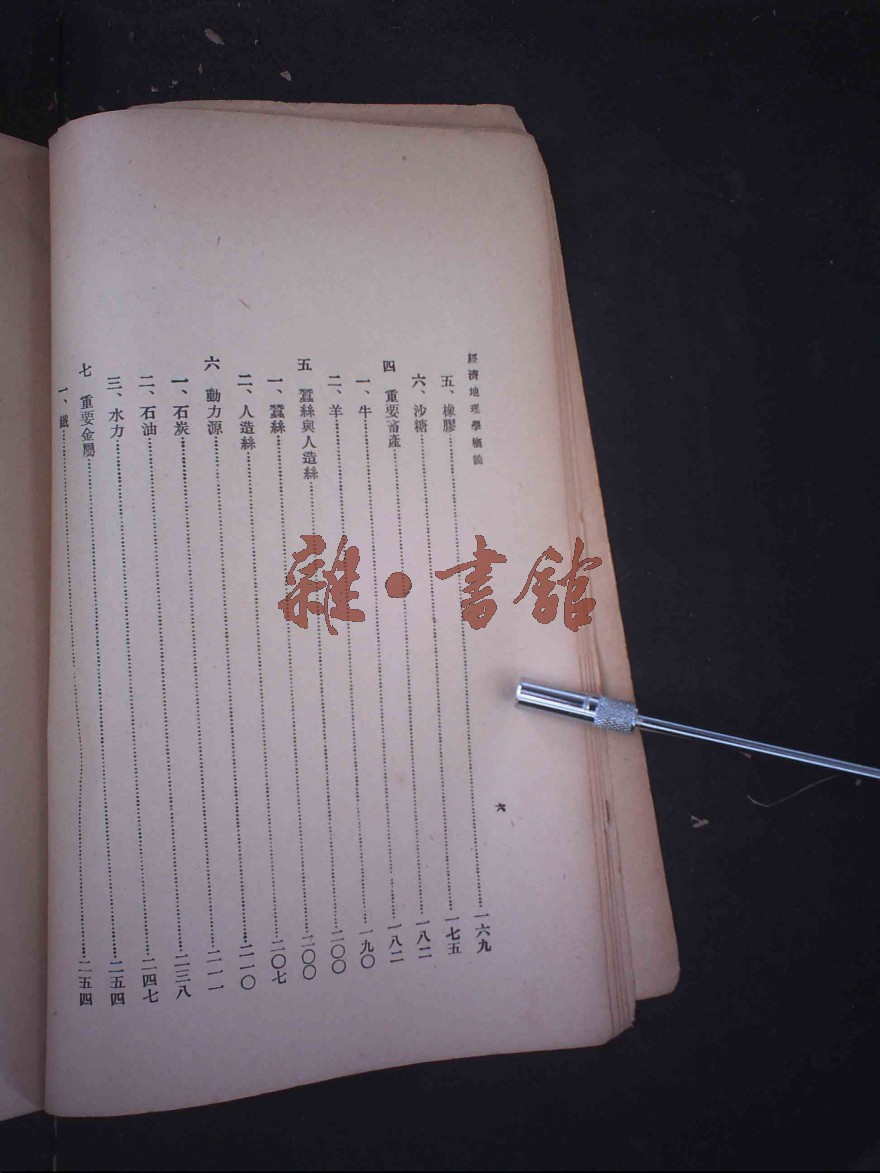 經濟地理學概論
六
五、橡膠……一六九
六、沙糖……一七五
四 重要畜產……一八二
一、牛……一八二
二、羊……一九〇
五 蠶絲與人造絲……二〇〇
一、蠶絲……二〇〇
二、人造絲……二〇七
六 動力源……二一〇
一、石炭……二一一
二、石油……二三八
三、水力……二四七
七 重要金屬……二五四
一、鐵……二五四
雜·書館